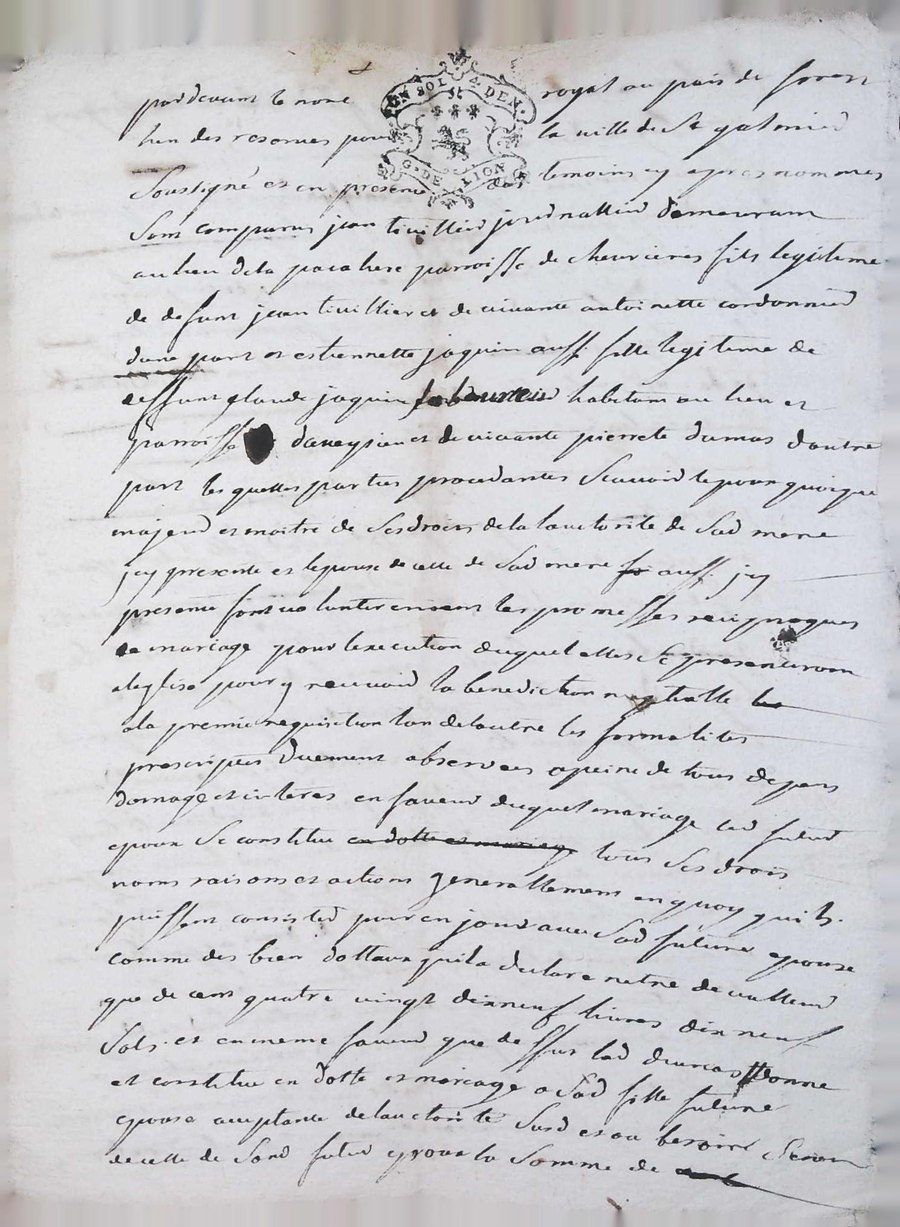 UN SOL 4 DEN.
G. DE LION
pardevant le nore royal au pais de forest
lieu des resorues pour la ville de St galmier
Soussigné et en presence des temoins cy apres nommes
Sont comparus jean tivillier journallier demeurant
au lieu de la parroisse de chevrieres fils legitime
de defunt jean tivillier et de vivante antoinette cordonnier
dune part et estiennette jaquin aussi fille legitime de
deffunt glaude jaquin laboureur habitant au lieu et
parroisse daveyzieu et de vivante pierrete dumas dautre
part les quelles parties procedantes Scavoir lepoux quoique
majeur et maitre de Ses droits de la lauctorite de Sad mere
jcy presente et lepouse de celle de Sad mere aussi jcy
presente font volontairement les promesses reciproques
de mariage pour lexecution duquel elles Se presenteront
a leglise pour y recevoir la benediction nuptialle
ala premiere requisition lun de lautre les formalites
prescriptes duement observees apeine de tous depens
domage et interes en faveur duquel mariage led futur
epoux Se constitue en dotte et mariage tous Ses droits
noms raisons et actions generallement en quoy quils
puissent consister pour en jouir avec Sad future epouse
comme des bien dottaux quila declare netre de valleur
que de cent quatre vingt dixneuf livres dix neuf
Sols et en meme faveur que dessus lad dumas donne
et constitue en dotte et mariage a Sad fille future
epouse acceptante de lauctorite Susd et au besoin
de celle de Sond futur epoux la Somme de